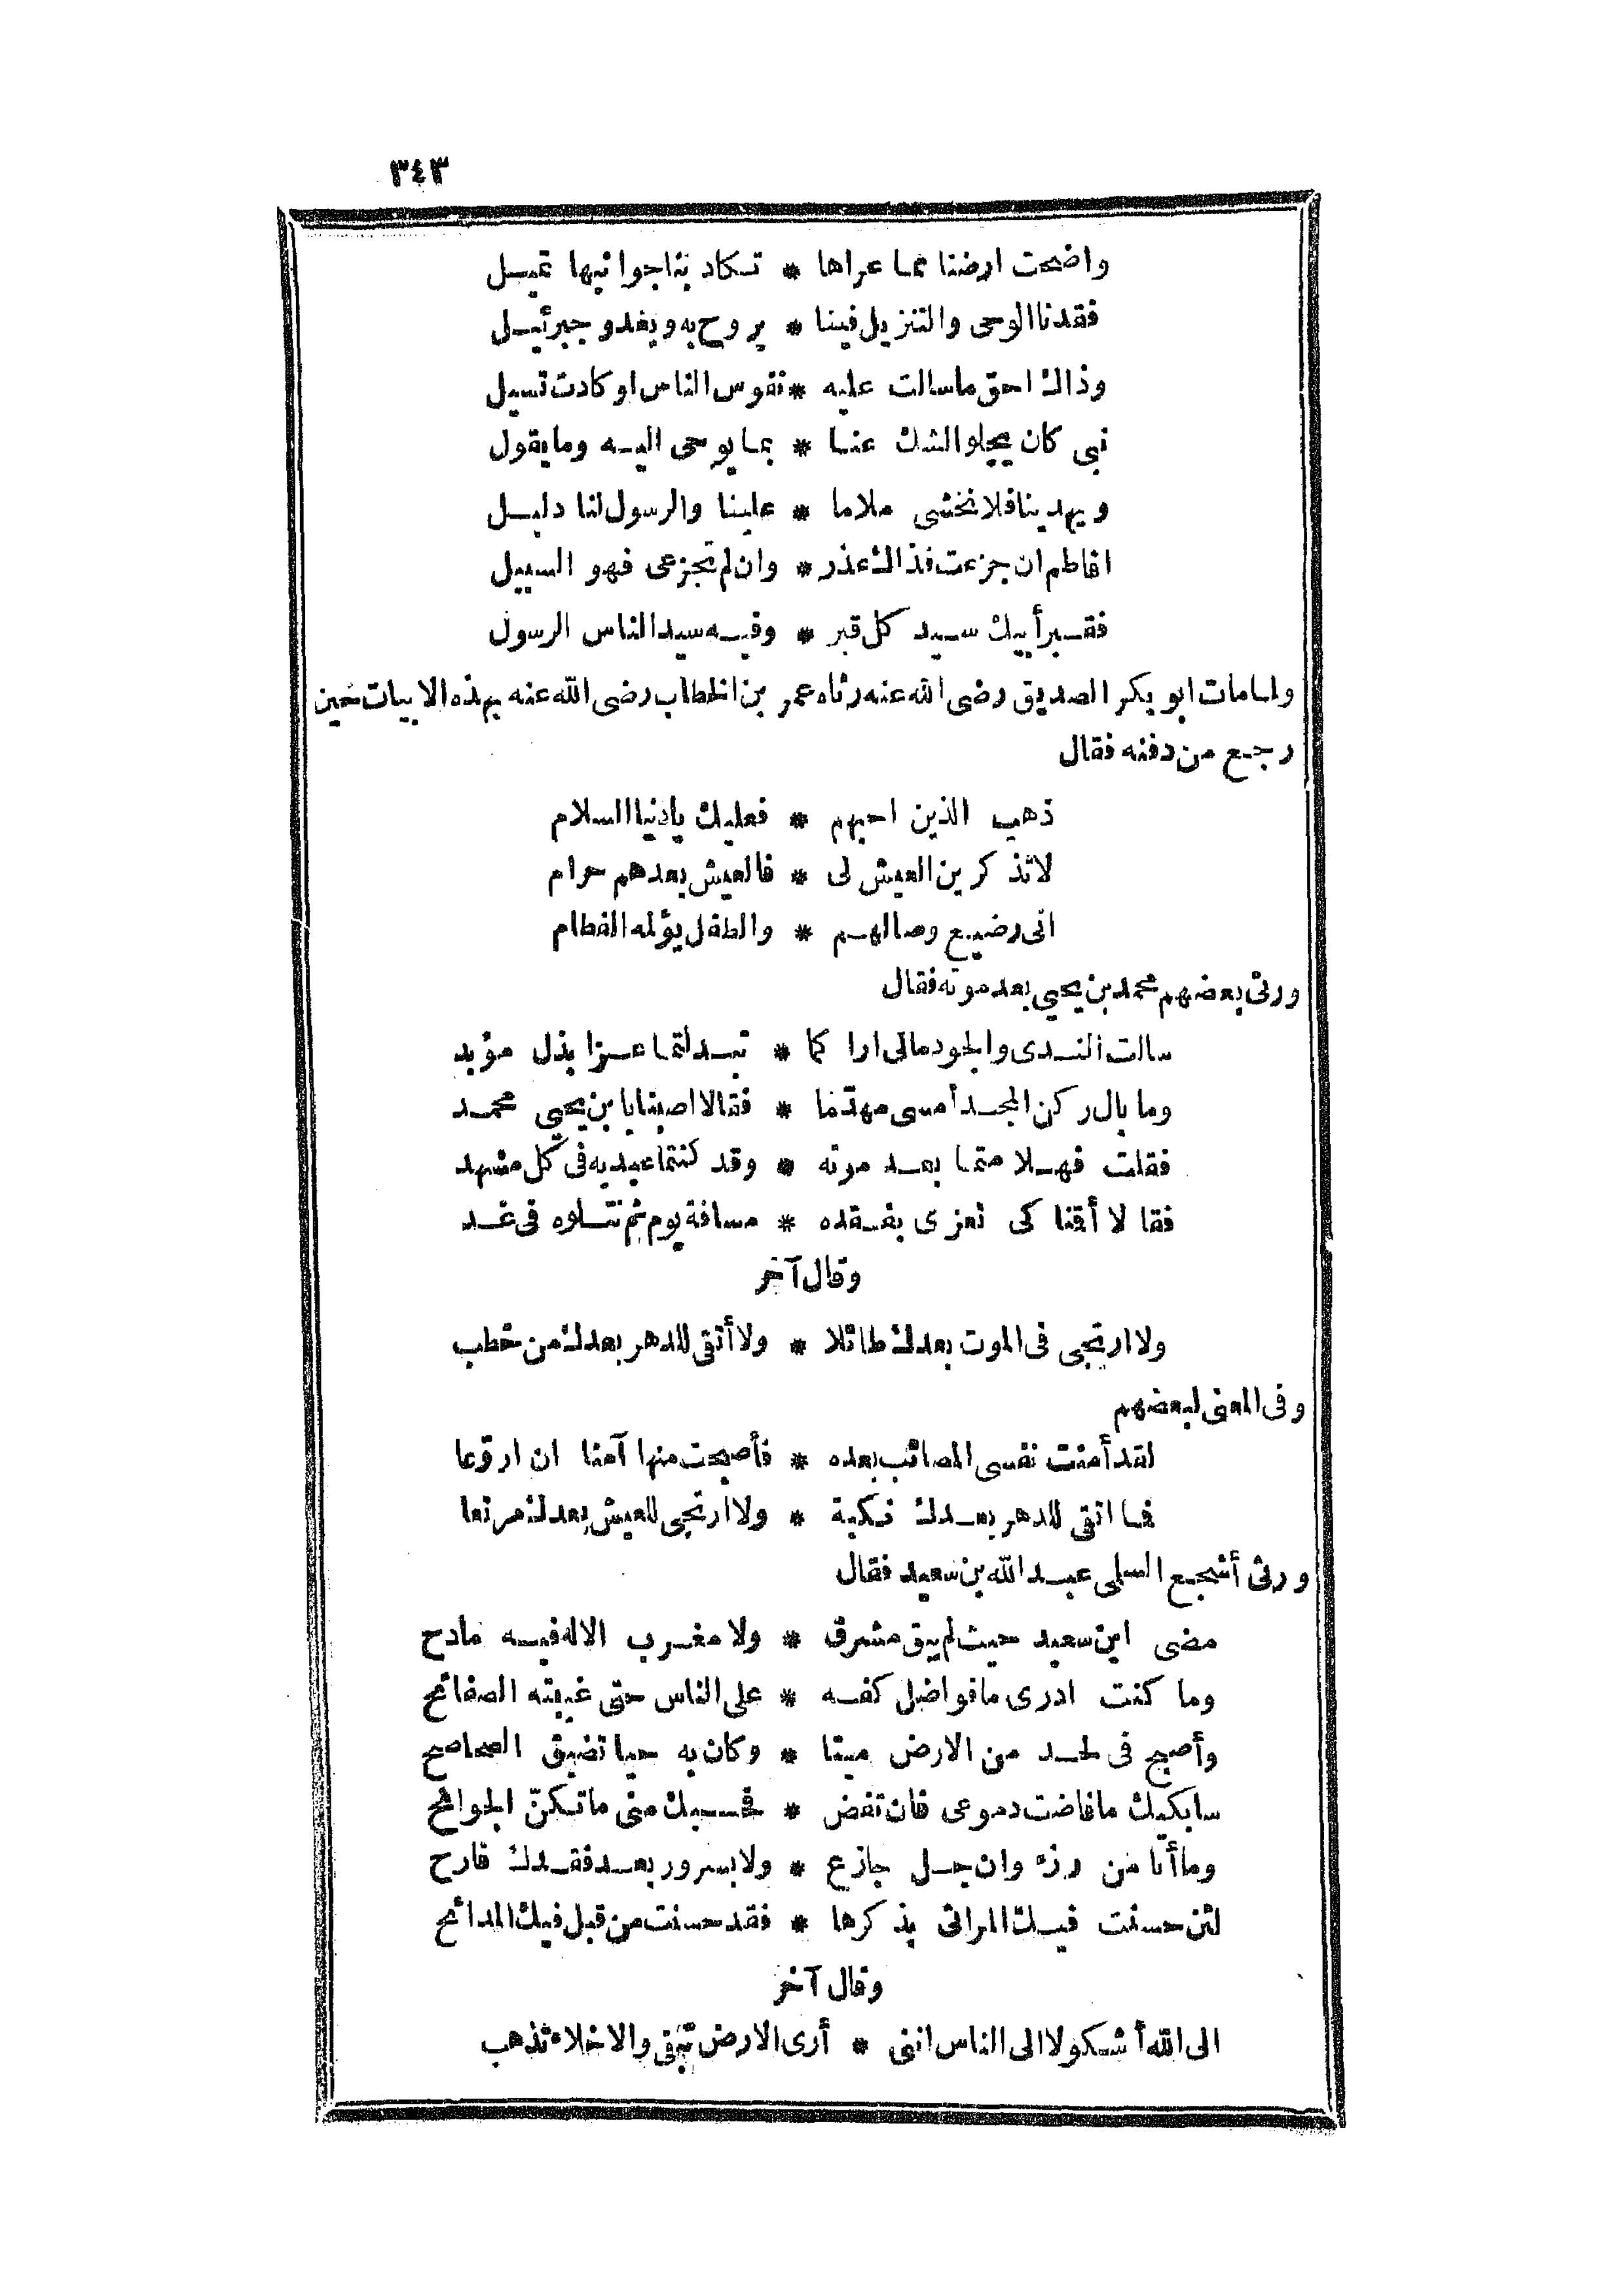 ٣٤٣
واضحت ارضنا مما عراها * تكاد بنا جوانبها تميل
فقدنا الوحى والتنزيل فينا * يروح به ويغدو جبرئيل
وذاك احق ماسالت عليه * نفوس الناس او كادت تسيل
نبى كان يجلو الشك عنا * بما يوحى اليه وما يقول
ويهدينا فلا نخشى ملاما * علينا والرسول لنا دليل
افاطم ان جزعت فذاك عذر * وان لم تجزعى فهو السبيل
فقبر أبيك سيد كل قبر * وفيه سيد الناس الرسول
ولما مات ابو بكر الصديق رضى الله عنه رثاه عمر بن الخطاب رضى الله عنه بهذه الابيات حين
رجع من دفنه فقال
ذهب الذين احبهم * فعليك يا دنيا السلام
لا تذكرين العيش لى * فالعيش بعدهم حرام
انى رضيع وصالهم * والطفل يؤلمه الفطام
ورثى بعضهم محمد بن يحيى بعد موته فقال
سالت الندى والجود مالى اراكما * تبدلتما عزا بذل مؤبد
وما بال ركن المجد أمسى مهدّما * فقالا اصبنا بابن يحيى محمد
فقلت فهلا متما بعد موته * وقد كنتما عبديه فى كل مشهد
فقالا أقمنا كى نعزى بفقده * مسافة يوم ثم نتلوه فى غد
وقال آخر
ولا ارتجى فى الموت بعدك طائلا * ولا أتقى للدهر بعدك من خطب
وفى المعنى لبعضهم
لقد أمنت نفسى المصائب بعده * فأصبحت منها آمنا ان اروّعا
فما اتقى للدهر بعدك نكبة * ولا أرتجى للعيش بعدك مرتعا
ورثى أشجع السلمى عبد الله بن سعيد فقال
مضى ابن سعيد حيث لم يبق مشرق * ولا مغرب الا له فيه مادح
وما كنت ادرى ما فواضل كفه * على الناس حتى غيبته الصفائح
وأصبح فى لحد من الارض ميتا * وكان به حيا تضيق الصحاصح
سابكيك ما فاضت دموعى فان تغض * فحسبك منى ما تكنّ الجوانح
وما أنا من رزء وان جل جازع * ولا بسرور بعد فقدك فارح
لئن حسنت فيك المراثى بذكرها * فقد حسنت من قبل فيك المدائح
وقال آخر
الى الله أشكو لا الى الناس اننى * أرى الارض تبقى والاخلاء تذهب